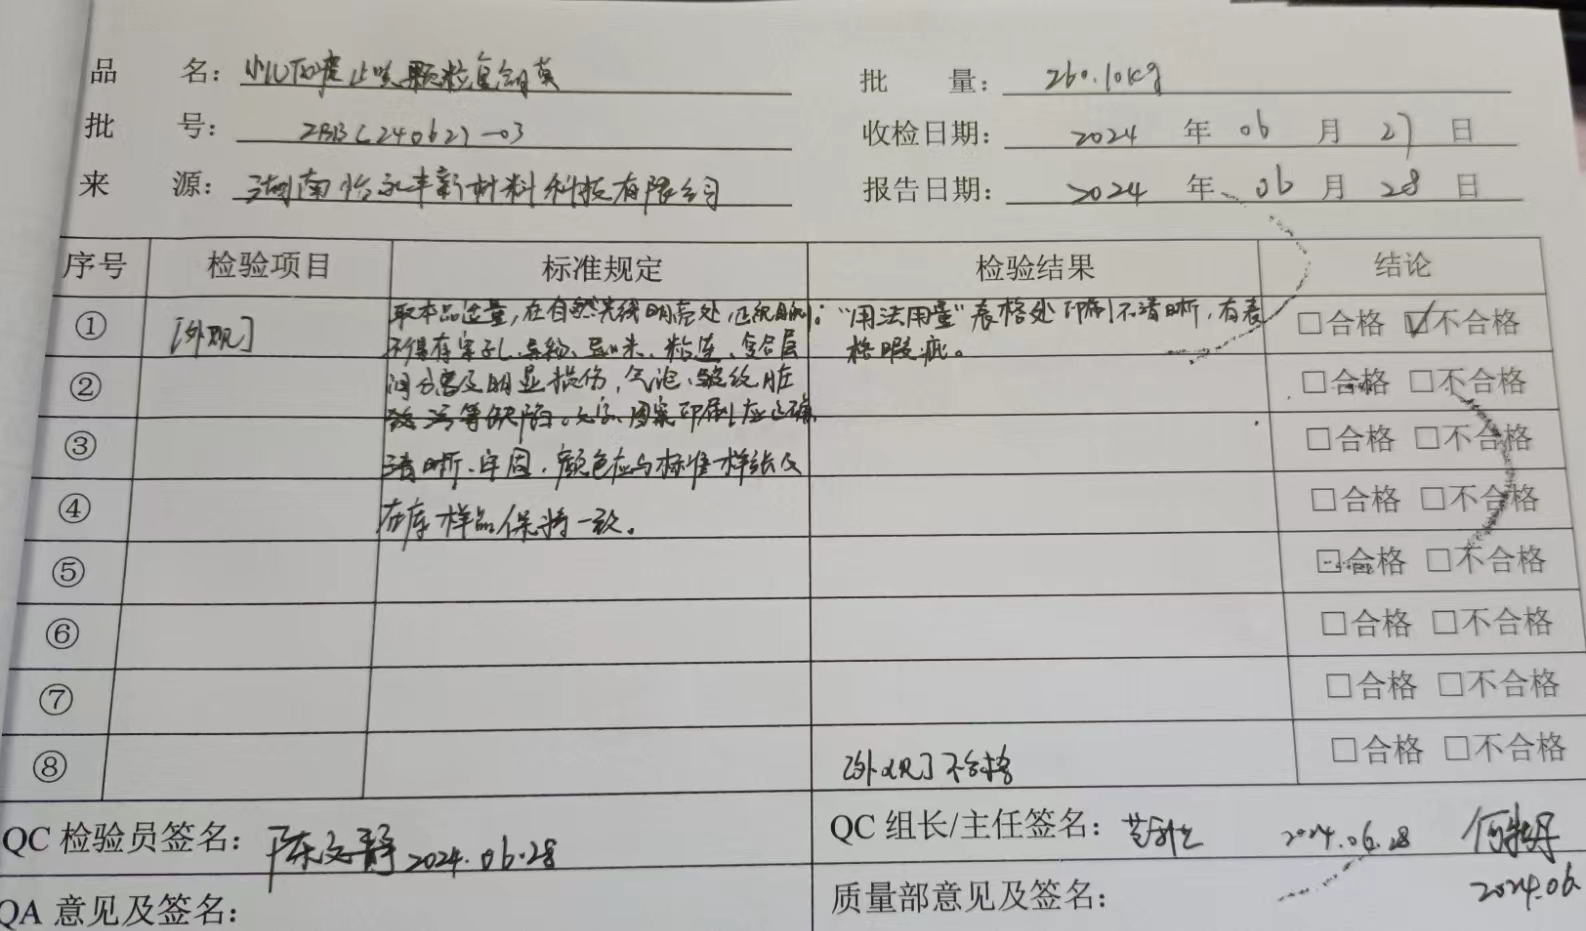 品 名： 小儿 止咳颗粒复合膜
批 量： 260.10kg
批 号： 240627-03
收检日期： 2024 年 06 月 27 日
来 源： 湖南怡永丰新材料科技有限公司
报告日期： 2024 年 06 月 28 日
序号 检验项目 标准规定 检验结果 结论
① [外观] 取本品适量，在自然光线明亮处，正视目测； “用法用量”表格处印刷不清晰，有表 □合格 ☑不合格
不得有穿孔、异物、异味、粘连、复合层 格瑕疵。
② 间分离及明显损伤，气泡、皱纹、脏 □合格 □不合格
污等缺陷。文字、图案印刷应正确、
③ 清晰、牢固，颜色应与标准样张及 □合格 □不合格
④ 在库样品保持一致。 □合格 □不合格
⑤ □合格 □不合格
⑥ □合格 □不合格
⑦ □合格 □不合格
⑧ [外观]不合格 □合格 □不合格
QC 检验员签名： 陈文静 2024.06.28
QC 组长/主任签名： 2024.06.28
2024.06
QA 意见及签名：
质量部意见及签名：